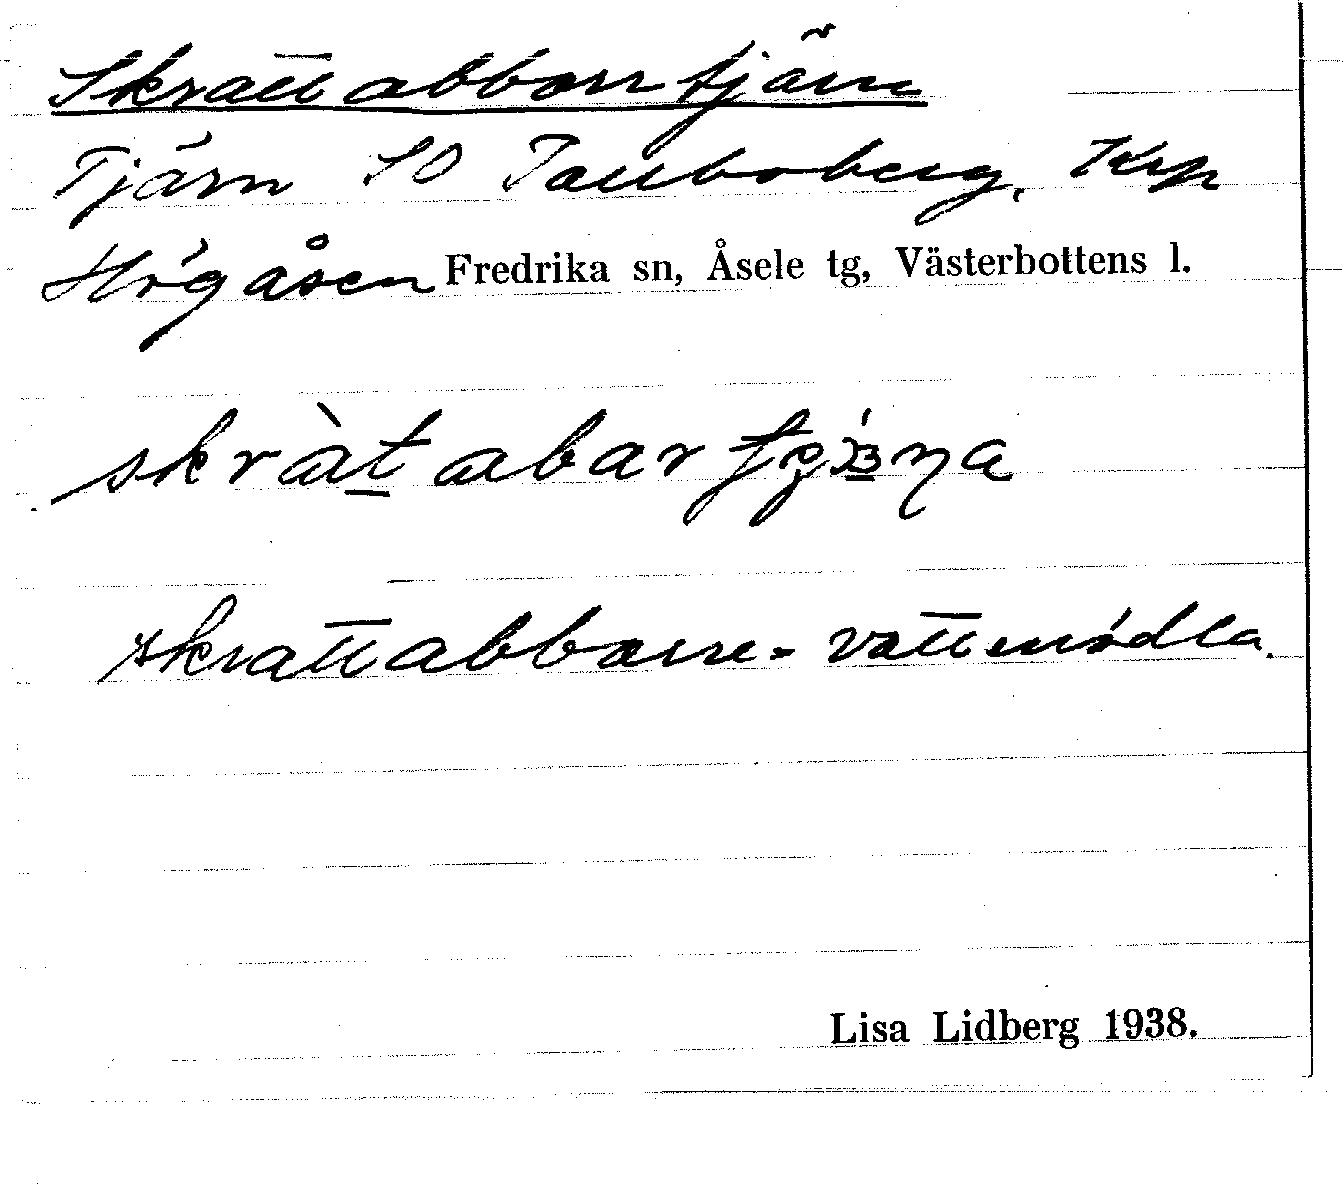 Skrattabborrtjärn
Tjärn SO Tallboberg, Krp
Högåsen Fredrika sn, Åsele tg, Västerbottens l.
skràt abar
skrattabborre - vattenödla.
Lisa Lidberg 1938.